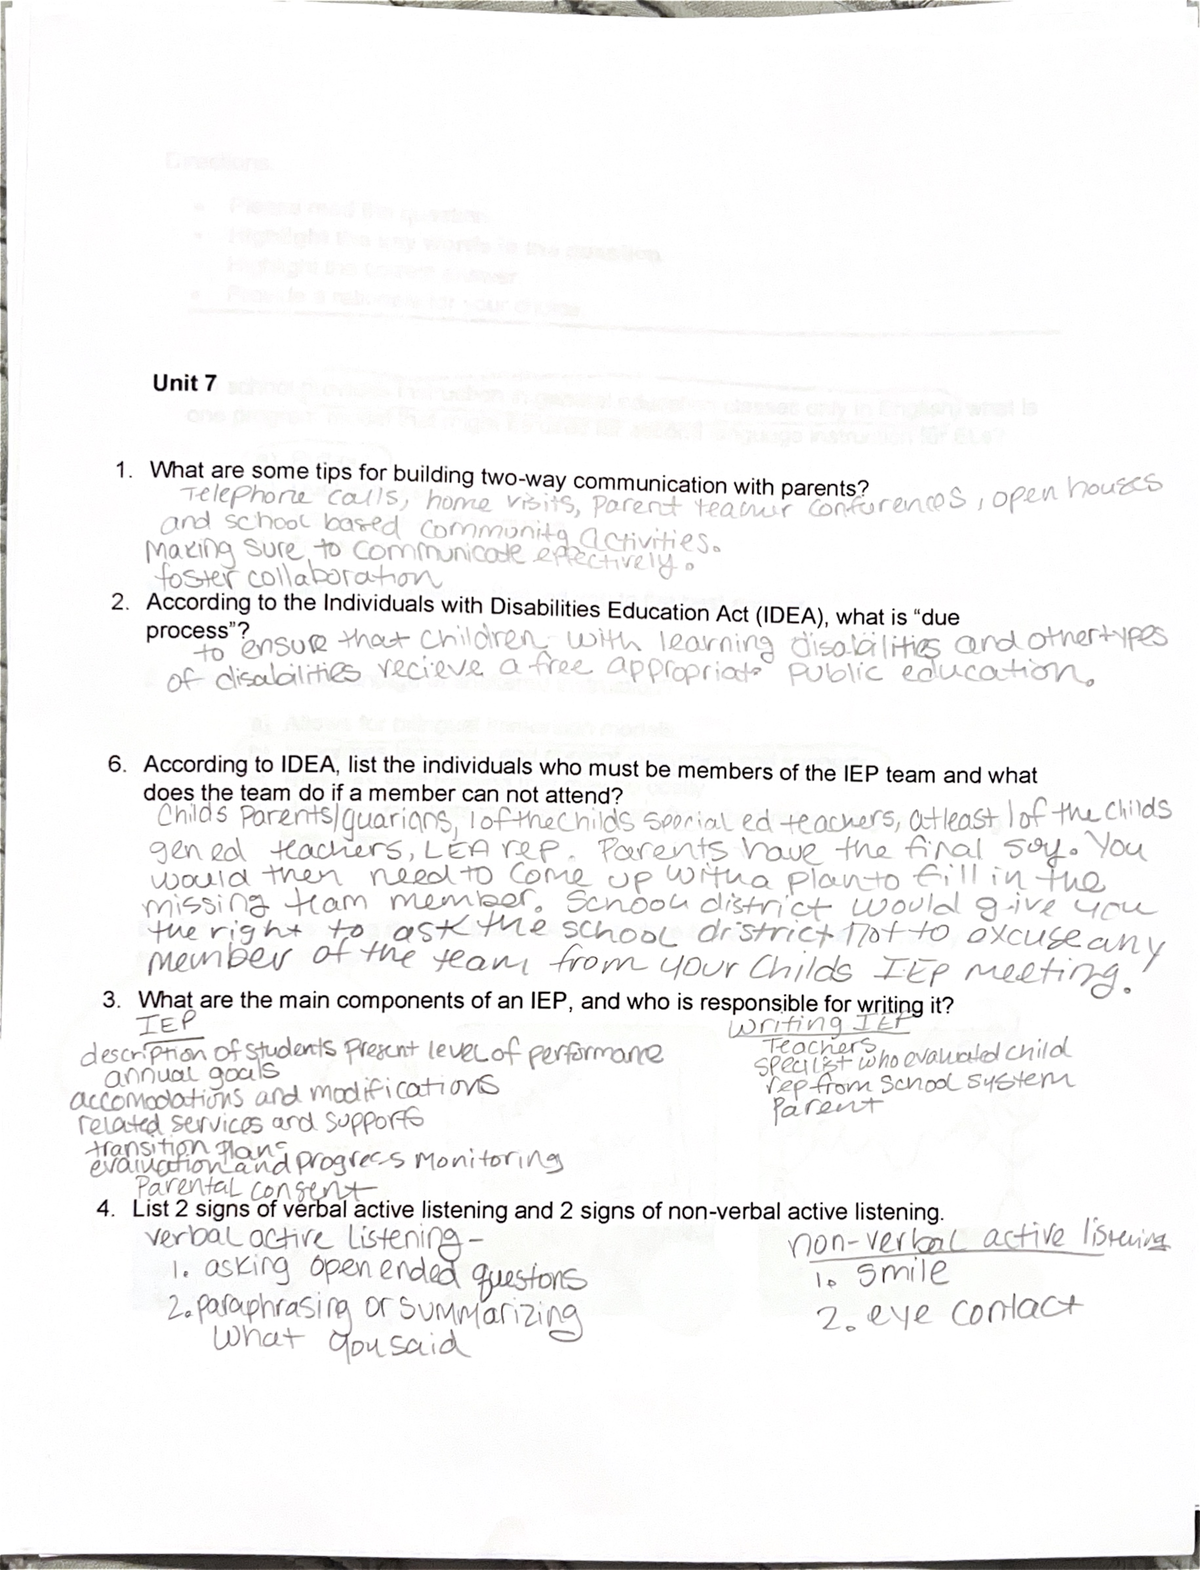 Unit 7
1. What are some tips for building two-way communication with parents?
Telephone calls, home visits, Parent teacher conferences, open houses
and school based community activities.
Making sure to communicate effectively.
foster collaboration
2. According to the Individuals with Disabilities Education Act (IDEA), what is “due
process”?
to ensure that children with learning disabilities and other types
of disabilities recieve a free appropriate public education.
6. According to IDEA, list the individuals who must be members of the IEP team and what
does the team do if a member can not attend?
Childs Parents/guarians, 1 of the childs special ed teachers, at least 1 of the childs
gen ed teachers, LEA rep. Parents have the final say. You
would then need to come up with a plan to fill in the
missing team member. School district would give you
the right to ask the school district not to excuse any
member of the team from your Childs IEP meeting.
3. What are the main components of an IEP, and who is responsible for writing it?
IEP
description of students present level of performance
annual goals
accomodations and modifications
related services and supports
transition plans
evaluation and progress monitoring
Parental consent
Writing IEP
Teachers
specilist who evaluated child
rep from school system
Parent
4. List 2 signs of verbal active listening and 2 signs of non-verbal active listening.
verbal active listening-
1. asking open ended questons
2. paraphrasing or summarizing
what you said
non-verbal active listening
1. smile
2. eye contact